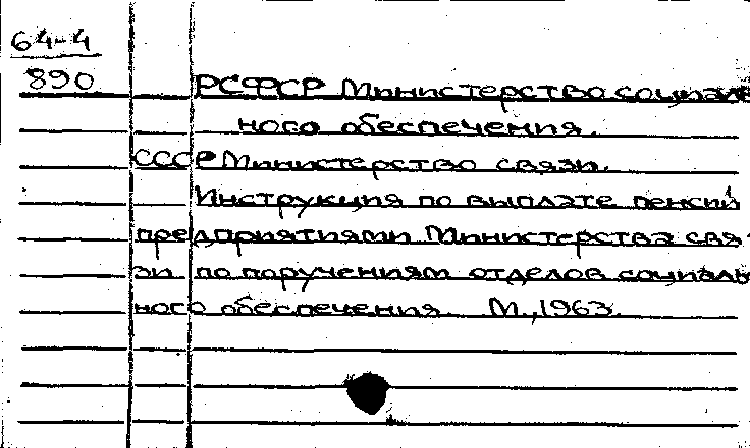 64-4
890
РСФСР Министерство социаль
ного обеспечения.
СССР Министерство связи.
Инструкция по выплате пенсий
предприятиями Министерства свя-
зи по поручениям отделов социаль
ного обеспечения. М., 1963.